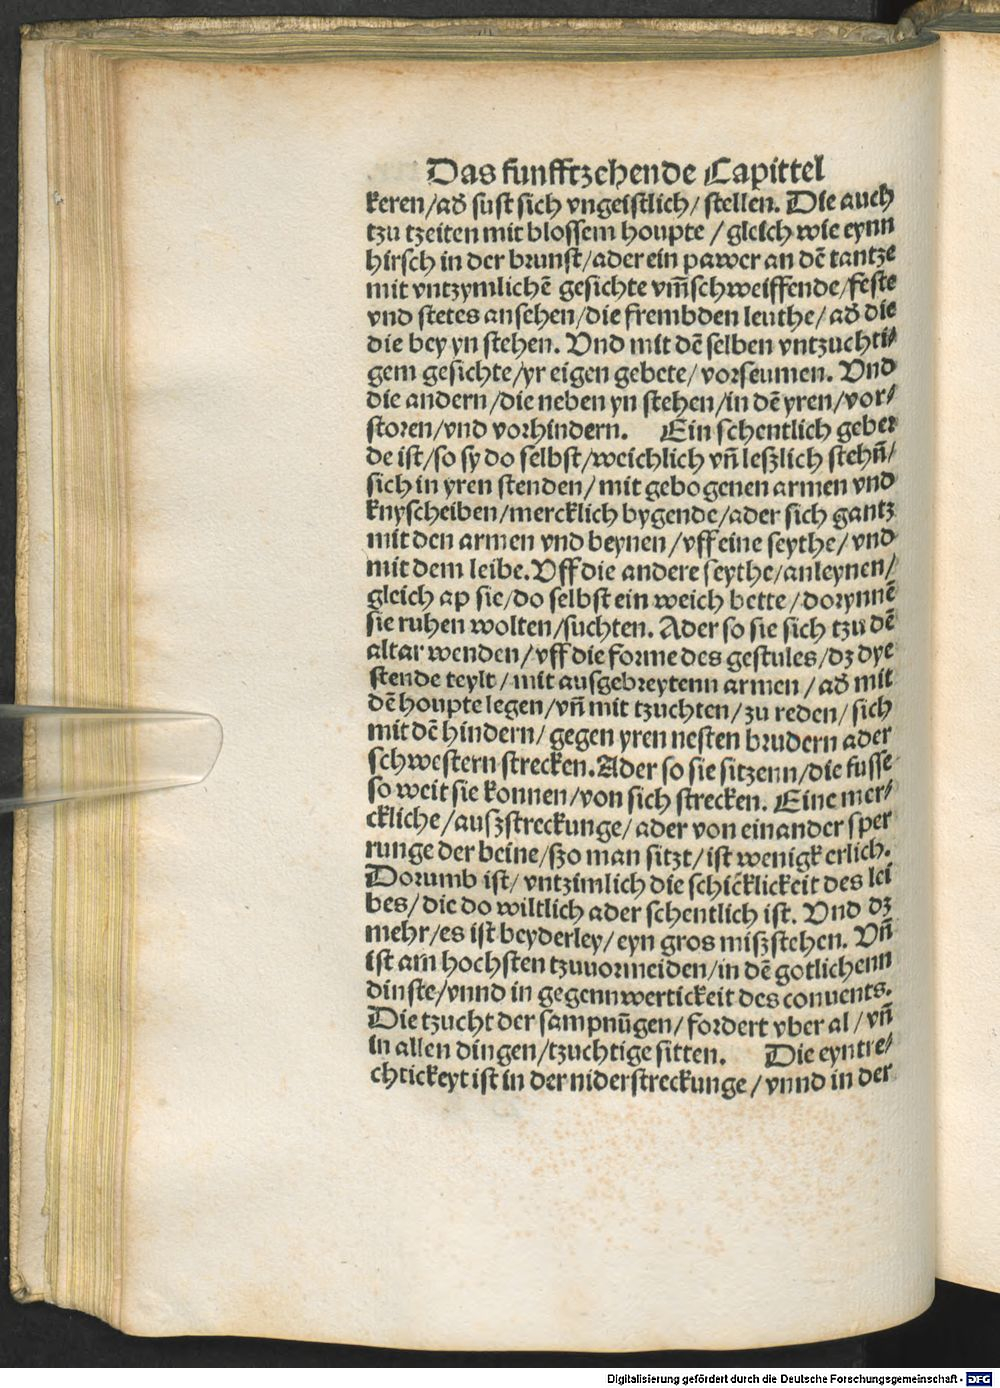 Das funfftzehende Capittel
keren/ad͛ sust sich vngeistlich/ stellen. Die auch
tzu tzeiten mit blossem houpte / gleich wie eynn
hirsch in der brunst/ader ein pawer an dē tantze
mit vntzymlichē gesichte vm̄schweiffende/feste
vnd stetes ansehen/die frembden leuthe/ ad͛ die
die bey yn stehen. Vnd mit dē selben vntzuchti/
gem gesichte/yr eigen gebete/ vorseumen. Vnd
die andern/die neben yn stehen/in dē yren/vor/
storen/vnd vorhindern. Ein schentlich geber
de ist/so sy do selbst/weichlich vn̄ leszlich stehn̄/
sich in yren stenden/ mit gebogenen armen vnd
knyscheiben/mercklich bygende/ader sich gantz
mit den armen vnd beynen/vff eine seythe/ vnd
mit dem leibe. Vff die andere seythe/anleynen/
gleich ap sie/do selbst ein weich bette/dorynnē
sie ruhen wolten/suchten. Ader so sie sich tzu dē
altar wenden/vff die forme des gestules/dz dye
stende teylt/ mit ausgebreytenn armen/ ad͛ mit
dē houpte legen/vn̄ mit tzuchten/zu reden/ sich
mit dē hindern/ gegen yren nesten brudern ader
schwestern strecken. Ader so sie sitzenn/die fusse
so weit sie konnen/von sich strecken. Eine mer/
ckliche/auszstreckunge/ader von einander sper
runge der beine/szo man sitzt/ist wenigk erlich.
Dorumb ist/ vntzimlich die schicklickeit des lei
bes/die do wiltlich ader schentlich ist. Vnd dz
mehr/es ist beyderley/eyn gros miszstehen. Vn̄
ist am hochsten tzuuormeiden/in dē gotlichenn
dinste/vnnd in gegennwertickeit des conuents.
Die tzucht der sampnūgen/fordert vber al/vn̄
in allen dingen/tzuchtige sitten. Die eyntre/
chtickeyt ist in der niderstreckunge/vnnd in der
Digitalisierung gefördert durch die Deutsche Forschungsgemeinschaft - DFG